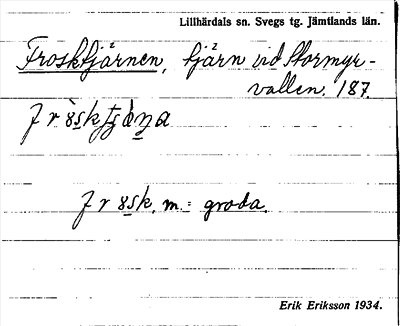 Lillhärdals sn. Svegs tg. Jämtlands län.
Frosktjärnen, tjärn vid Stormyr-
vallen. 187.
m. = groda.
Erik Eriksson 1934.